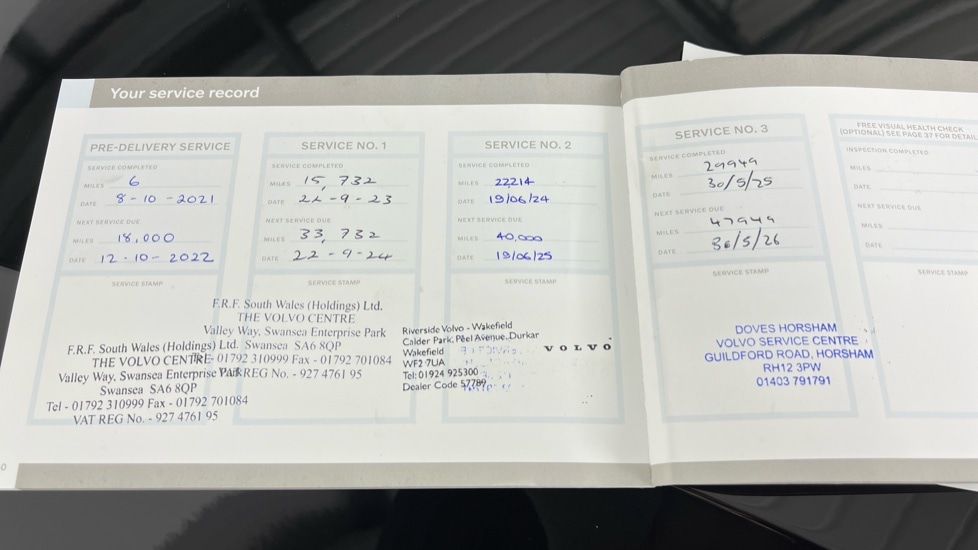 Your service record
PRE-DELIVERY SERVICE
SERVICE COMPLETED
MILES 6
DATE 8-10-2021
NEXT SERVICE DUE
MILES 18,000
DATE 12-10-2022
SERVICE STAMP
F.R.F. South Wales (Holdings) Ltd.
THE VOLVO CENTRE
Valley Way, Swansea Enterprise Park
Swansea SA6 8QP
Tel - 01792 310999 Fax - 01792 701084
VAT REG No. - 927 4761 95
SERVICE NO. 1
SERVICE COMPLETED
MILES 15,732
DATE 22-9-23
NEXT SERVICE DUE
MILES 33,732
DATE 22-9-24
F.R.F. South Wales (Holdings) Ltd.
THE VOLVO CENTRE
Valley Way, Swansea Enterprise Park
Swansea SA6 8QP
01792 310999 Fax - 01792 701084
REG No. - 927 4761 95
SERVICE NO. 2
SERVICE COMPLETED
MILES 22214
DATE 19/06/24
NEXT SERVICE DUE
MILES 40,000
DATE 19/06/25
SERVICE STAMP
Riverside Volvo - Wakefield
Calder Park, Peel Avenue, Durkar
Wakefield
WF2 7UA
Tel: 01924 925300
Dealer Code 57789
VOLVO
SERVICE NO. 3
SERVICE COMPLETED
MILES 29949
DATE 30/5/25
NEXT SERVICE DUE
MILES 47949
DATE 30/5/26
SERVICE STAMP
DOVES HORSHAM
VOLVO SERVICE CENTRE
GUILDFORD ROAD, HORSHAM
RH12 3PW
01403 791791
FREE VISUAL HEALTH CHECK
(OPTIONAL) SEE PAGE 37 FOR DETAIL
INSPECTION COMPLETED
MILES
DATE
NEXT SERVICE DUE
MILES
DATE
SERVICE STAMP
0